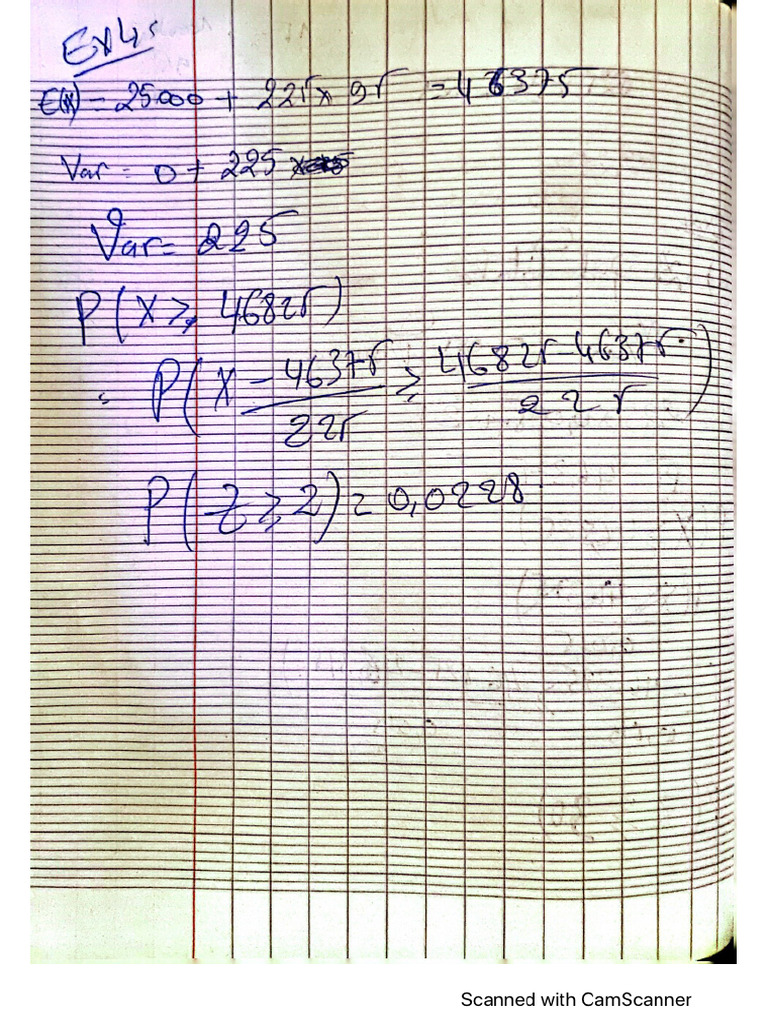 Ex4:
E(X) = 25000 + 225 x 95 = 46375
Var = 0 + 225
Var = 225
P(X ≥ 46825)
= P(X - 46375 / 225 ≥ 46825 - 46375 / 225)
P(Z ≥ 2) = 0,0228
Scanned with CamScanner